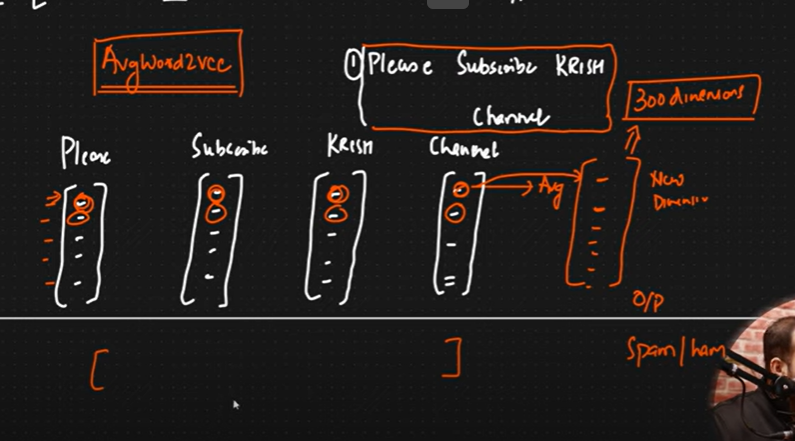 AvgWord2vec
① Please Subscribe KRISH
Channel
300 dimensions
Please Subscribe KRISH Channel
Avg
New
O/P
Spam/ham